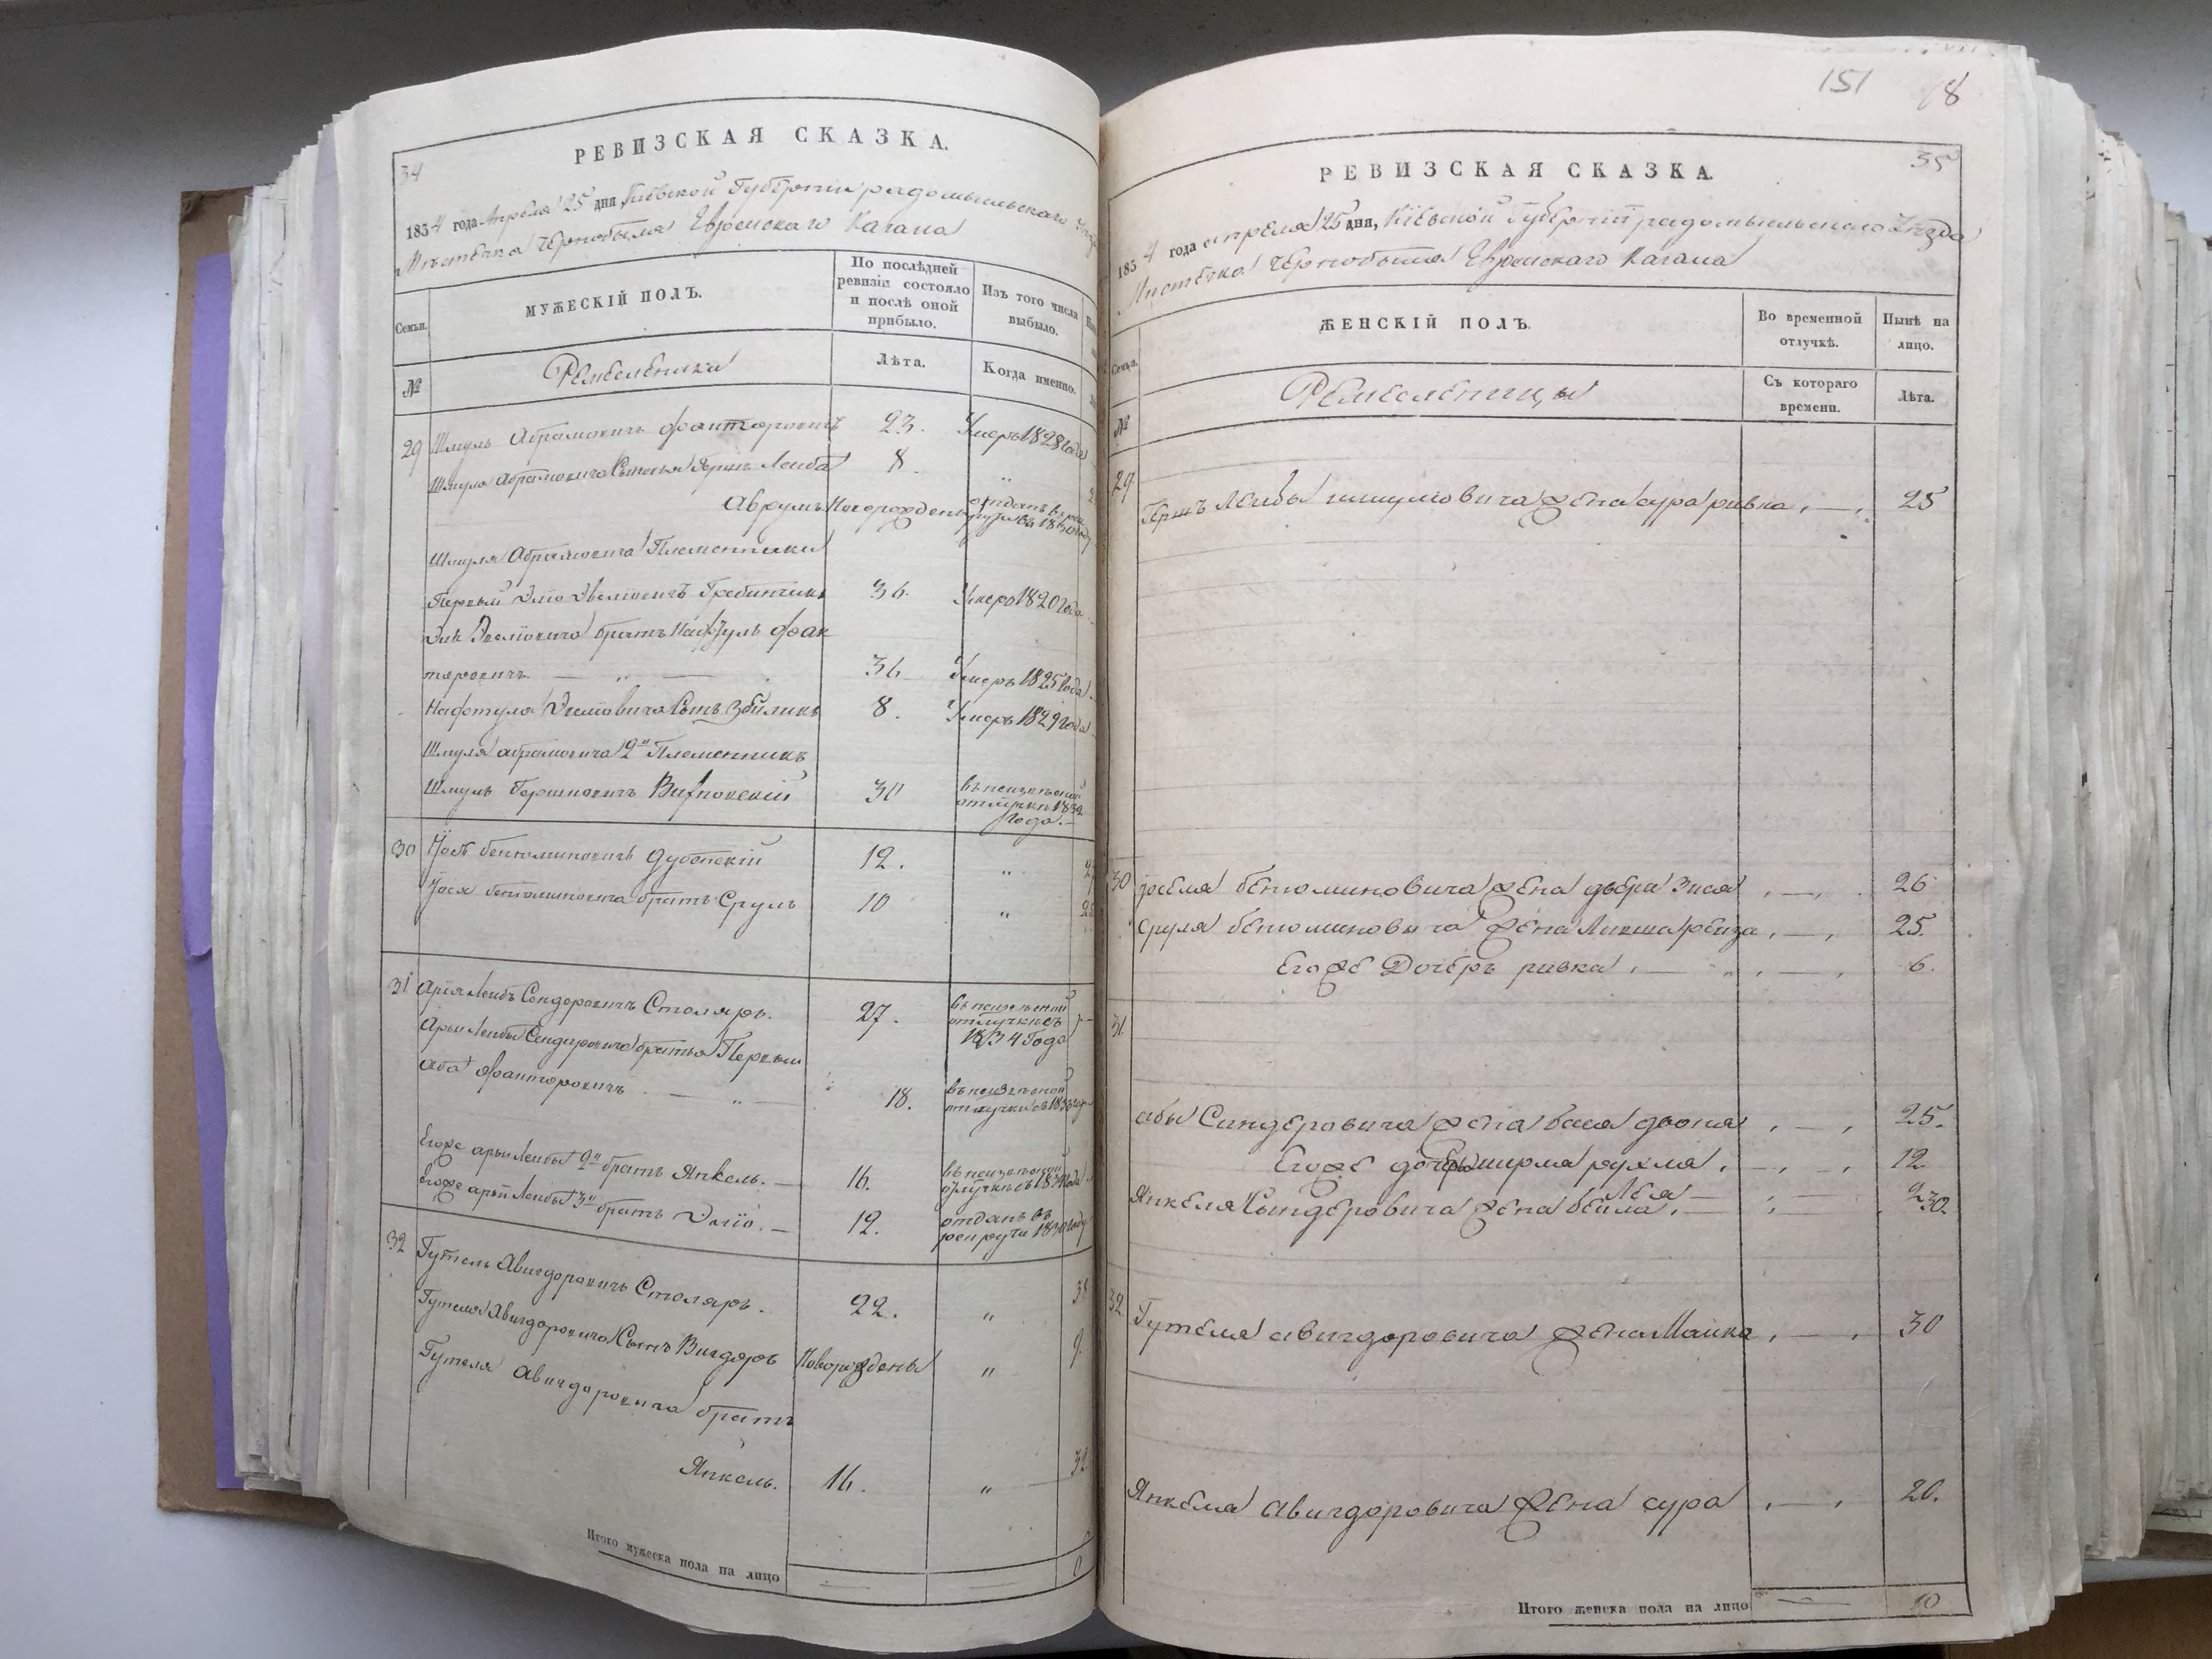 34
РЕВИЗСКАЯ СКАЗКА.
1834 года Апреля 25 дня Кіевской Губерніи радомысльскаго
Мѣстечка Чернобыля Еврейскаго Кагала
Семьи.
МУЖЕСКІЙ ПОЛЪ.
По послѣдней ревизіи состояло и послѣ оной прибыло.
Изъ того числа выбыло.
№
Ремесленика
Лѣта.
Когда именно.
29 Шмуль Абрамовичъ Фанторовичъ 23. Умеръ 1828 года
Шмуля Абрамовича Сыновья Герш Лейба 8. "
Аврумъ Новорожденъ отданъ в рек
руты въ 1830 году
Шмуля Абрамовича Племенники
Первый Элiо Эвелiовичъ Гребинчикъ 36. Умеръ 1820 года
Эли Эвелiовича братъ Нафтуль Фан
торовичъ — " — 36 Умеръ 1825 года
Нафтуля Эвелiовича Сынъ 8. Умеръ 1829 года
Шмуля абрамовича 2й Племенникъ
Шмуль Гершковичъ 30 въ неизвѣстной
отлучкѣ 1832
года.—
30 Іосъ бенюминовичъ Дубенскій 12. "
Іося бенюминовича братъ Сруль 10 "
31 Арія Лейбъ Сендеровичъ Столяръ. 27. въ неизвѣстной
отлучкѣ съ
1834 Года
Арьи Лейбы Сендеровича братья Первый
Аба Фанторовичъ — " — 18. въ неизвѣстной
отлучкѣ съ
Егоже арьи Лейбы 2й братъ Янкель. — 16. въ неизвѣстной
отлучкѣ съ
Егоже арьи Лейбы 3й братъ Элiо. — 12. отданъ въ
рекруты
32 Гутель Авигдоровичъ Столяръ. 22. "
Гутеля Авигдоровича Сынъ Вигдоръ Новорожденъ " 9.
Гутеля Авигдоровича братъ
Янкель. 16. "
Итого мужеска пола на лицо
151 18
35
РЕВИЗСКАЯ СКАЗКА.
1834 года апреля 25 дня, Кіевской Губерніи радомысльскаго уезда
Мистечка Чернобыля Еврейскаго Кагала
Семьи.
ЖЕНСКІЙ ПОЛЪ.
Во временной отлучкѣ.
Нынѣ на лицо.
№
Ремесленицы
Съ котораго времени.
Лѣта.
29 Гершъ Лейбы шмулiовича жена сура ривка 25
30 Іоселя бенюминовича жена двера зися 26
Сруля бенюминовича жена рейза 25.
Егоже Дочеръ ривка " 6.
31.
абы Сендеровича жена бася двоня 25.
Егоже дочеры ширма рухля 12
Лея — 2
Янкеля Сендеровича жена бейла 30.
32. Гутеля авигдоровича жена Малка 30
Янкеля авигдоровича жена сура 20.
Итого женска пола на лицо 10